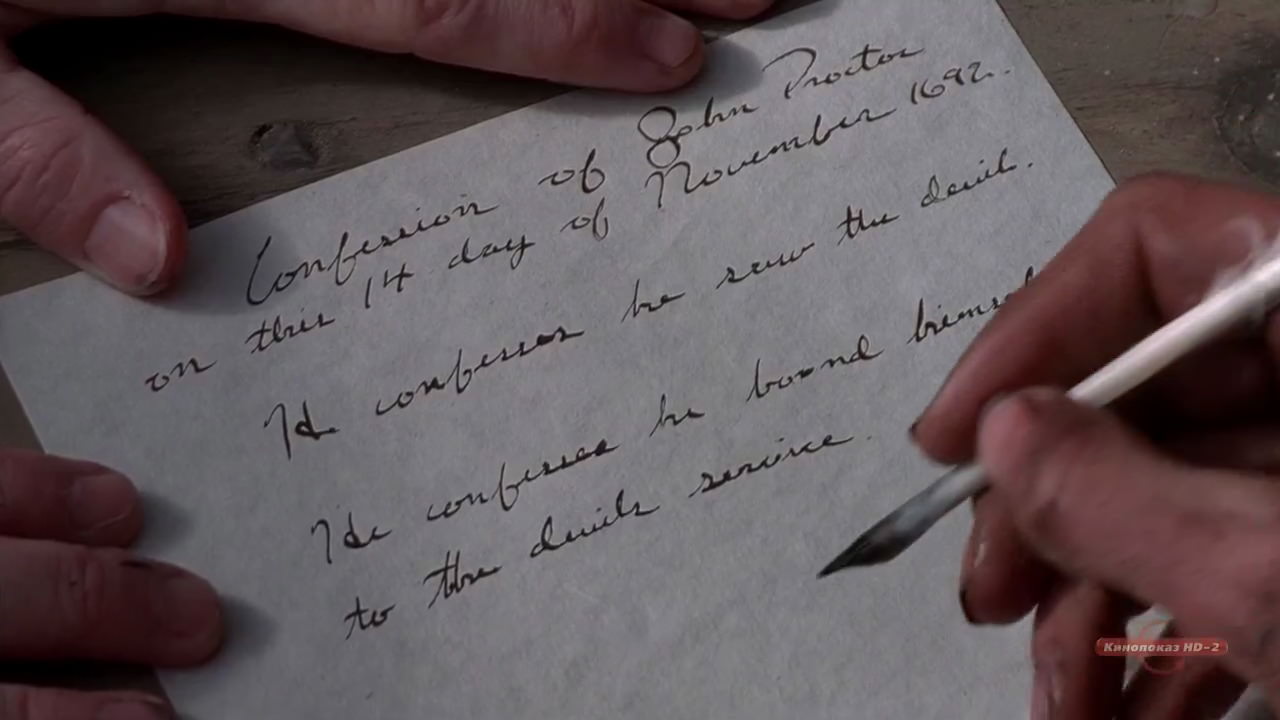 Confession of John Proctor
on this 14 day of November 1692.
He confesses he saw the devil.
He confesses he bound himself
to the devils service.
Кинопоказ HD-2